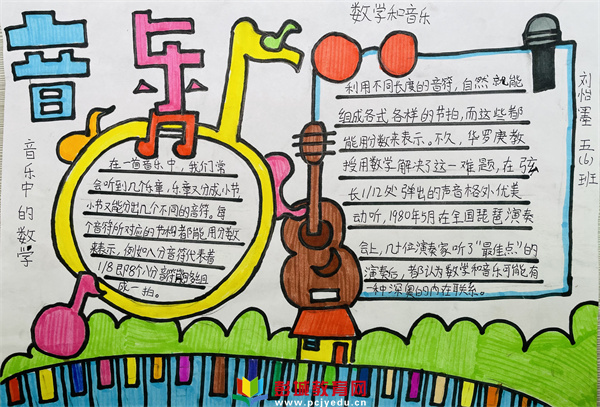 音乐
数学和音乐
音乐中的数学
在一首音乐中，我们常
会听到几个乐章，乐章又分成小节
小节又能分出几个不同的音符。每
个音符所对应的节拍都能用分数
来表示，例如八分音符代表着
1/8
成一拍。
利用不同长度的音符，自然就能
组成各式各样的节拍，而这些都
能用分数来表示。不久，华罗庚教
授用数学解决了这一难题，在弦
长1/12处弹出的声音格外优美
动听，1980年5月在全国琵琶演奏
会上，几十位演奏家听了“最佳点”的
演奏后，都认为数学和音乐可能有
一种深奥的内在联系。
刘怡墨 五(6)班
彭城教育网
www.pcjyedu.cn